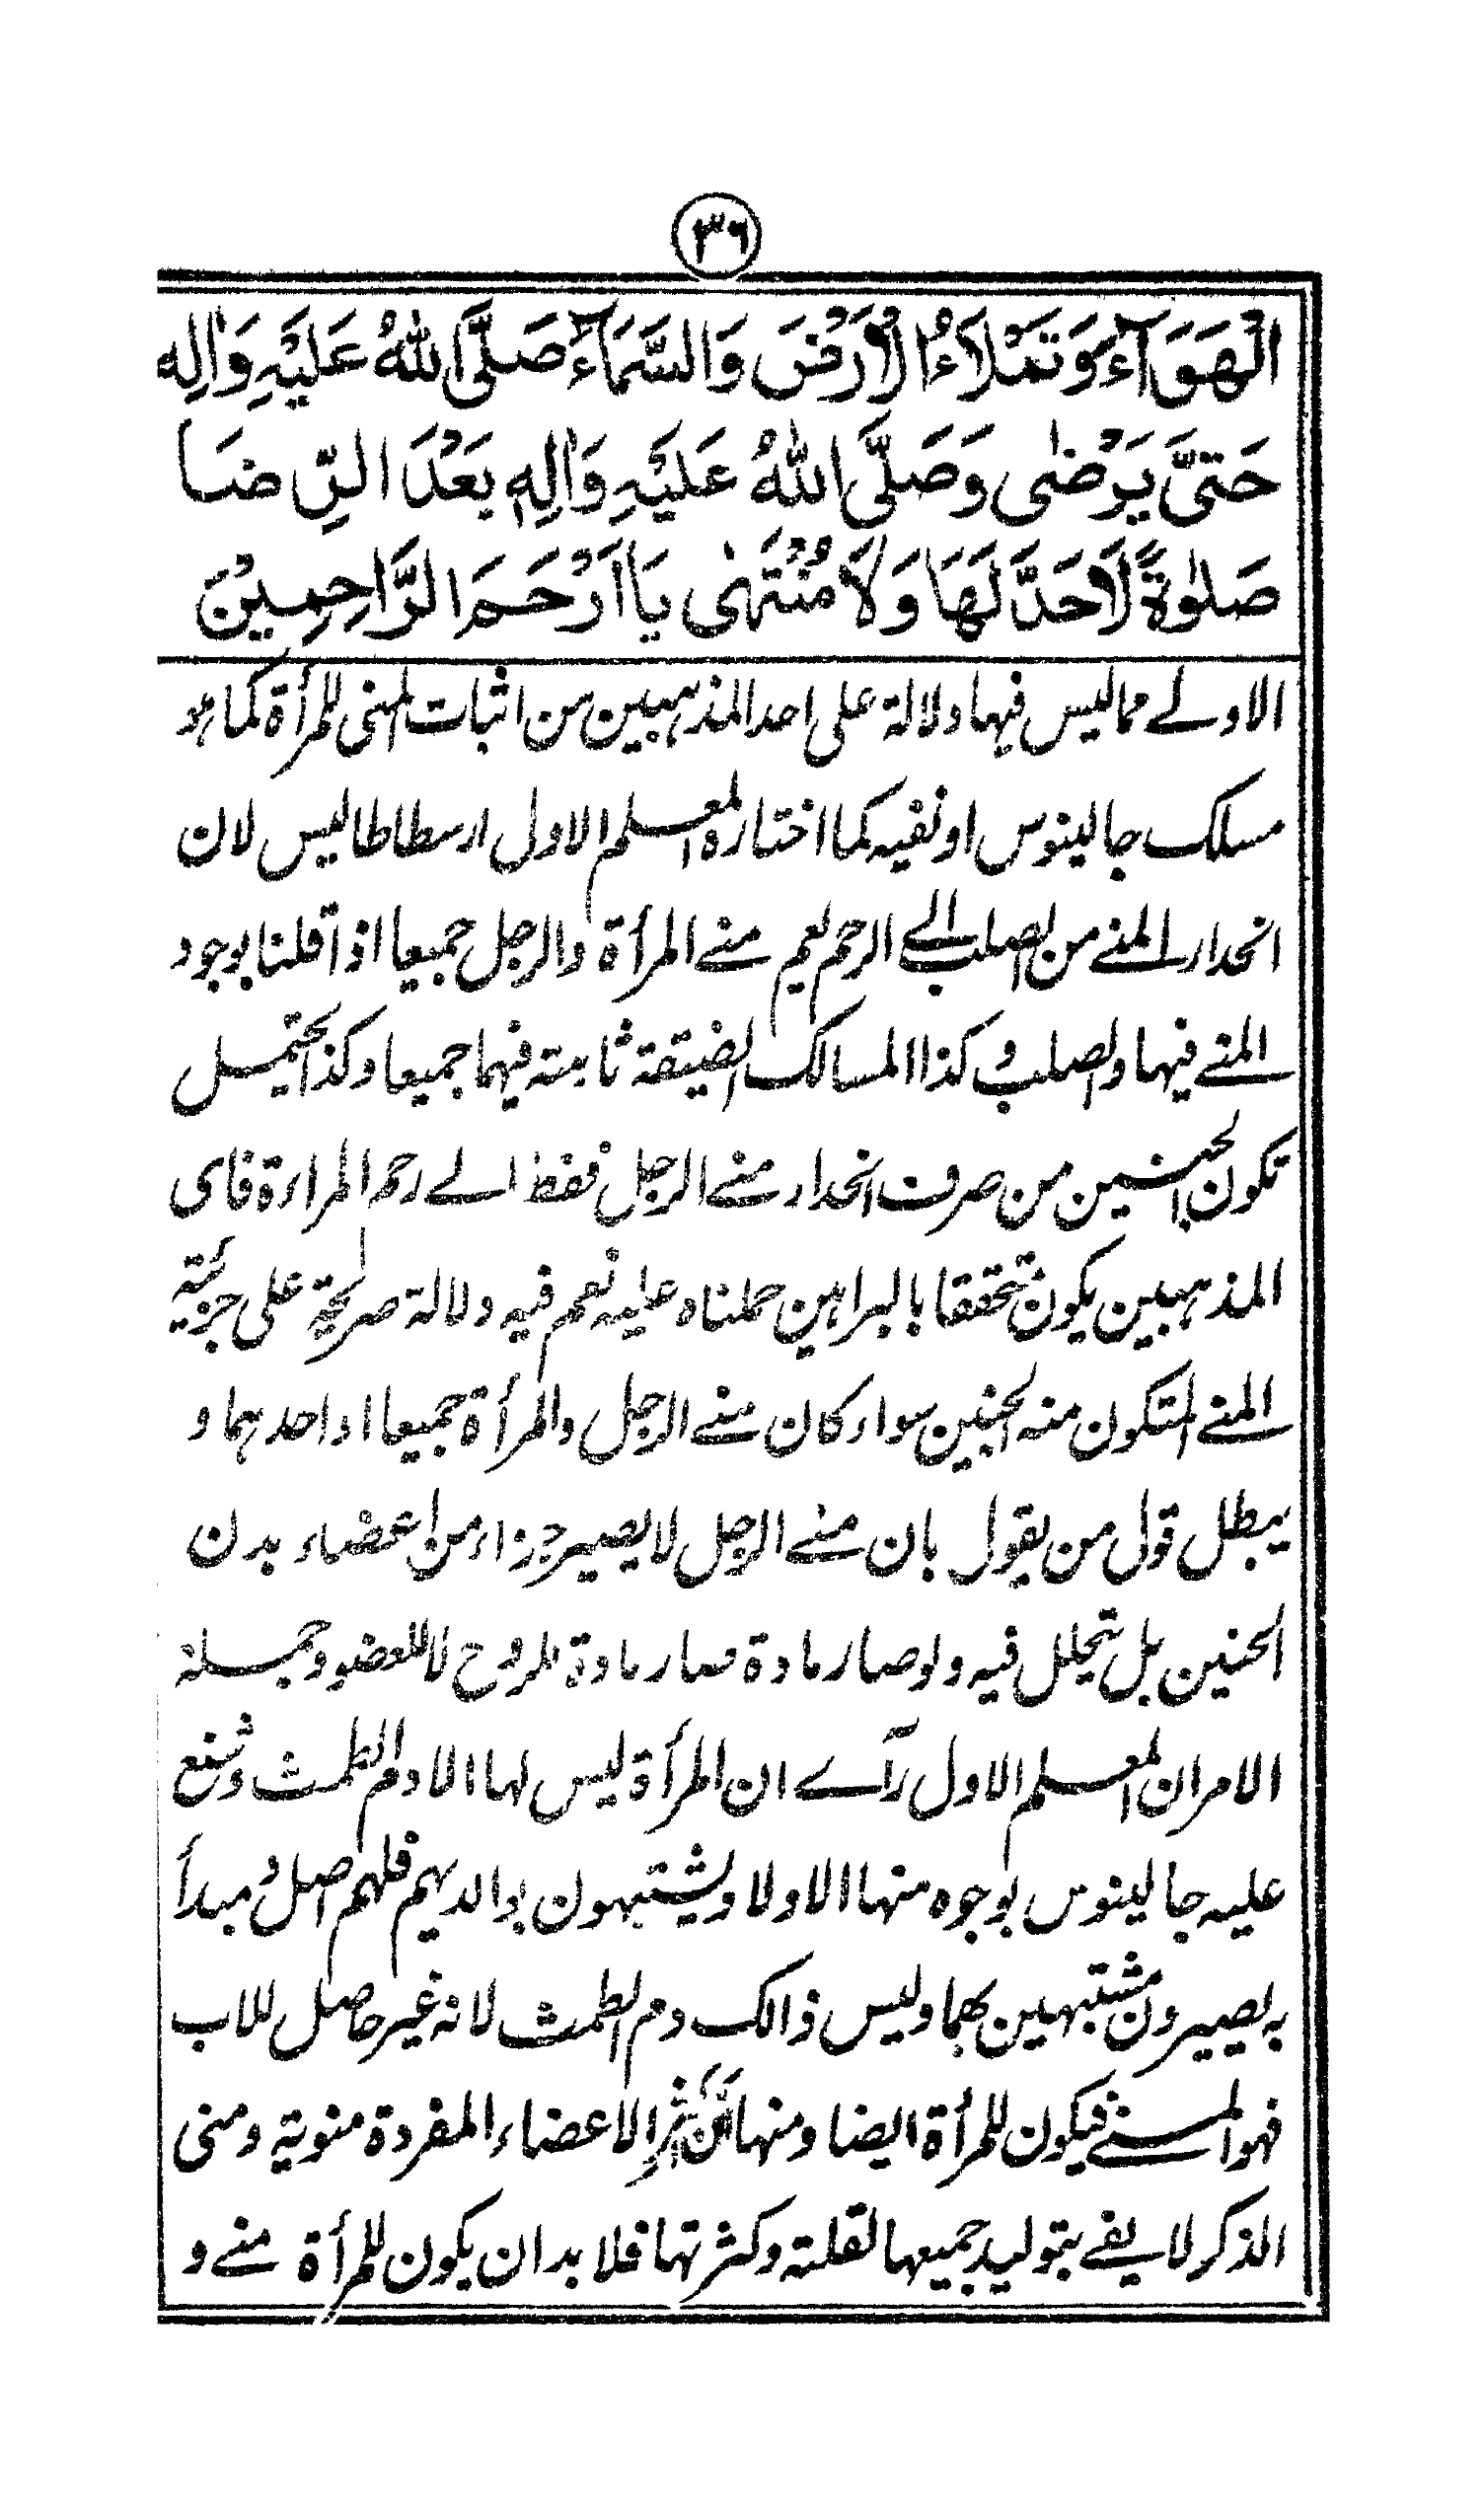 ٣٦
الْهَوَآءَ وَتَمْلَاءُ الْاَرْضَ وَالسَّمَآءَ صَلَّى اللهُ عَلَيْهِ وَاٰلِهٖ
حَتّٰى يَرْضٰى وَصَلَّى اللهُ عَلَيْهِ وَاٰلِهٖ بَعْدَ الرِّضَا
صَلٰوةً لَاحَدَّ لَهَا وَلَا مُنْتَهٰى يَا اَرْحَمَ الرَّاحِمِيْنَ
الاولے مما ليس فيها دلالة على احد المذهبين من اثبات المنى للمرأة كما هو
مسلك جالينوس او نفيه كما اختاره المعلم الاول ارسطاطاليس لان
انحدار المنے من الصلب الے الرحم يعم منے المرأة والرجل جميعا اذا قلنا بوجود
المنے فيها والصلب وكذا المسالك الضيقة ثابتة فيهما جميعا وكذا يحتمل
تكون الجنين من صرف انحدار منے الرجل فقط الے رحم المراءة فاى
المذهبين يكون تحققا بالبراهين حملناه عليه نعم فيه دلالة صريحة على جزئية
المنے المتكون منه الجنين سواء كان منے الرجل والمرأة جميعا او احدهما و
يبطل قول من يقول بان منے الرجل لا يصير جزاء من اعضاء بدن
الجنين بل يتحلل فيه ولو صار مادة صار مادة للروح لا للعضو وجملة
الامر ان المعلم الاول رآے ان المرأة ليس لها الا دم الطمث وشنع
عليه جالينوس بوجوه منها الاولا ويشتبهون بوالديهم فلهم اصل ومبدأ
به يصيرون مشتبهين بهما وليس ذالك دم الطمث لانه غير حاصل للاب
فهو المنے فيكون للمرأة ايضا ومنها ان اكثر الاعضاء المفردة منوية ومنى
الذكر لا يفے بتوليد جميعها لقلته وكثرتها فلا بد ان يكون للمرأة منے و